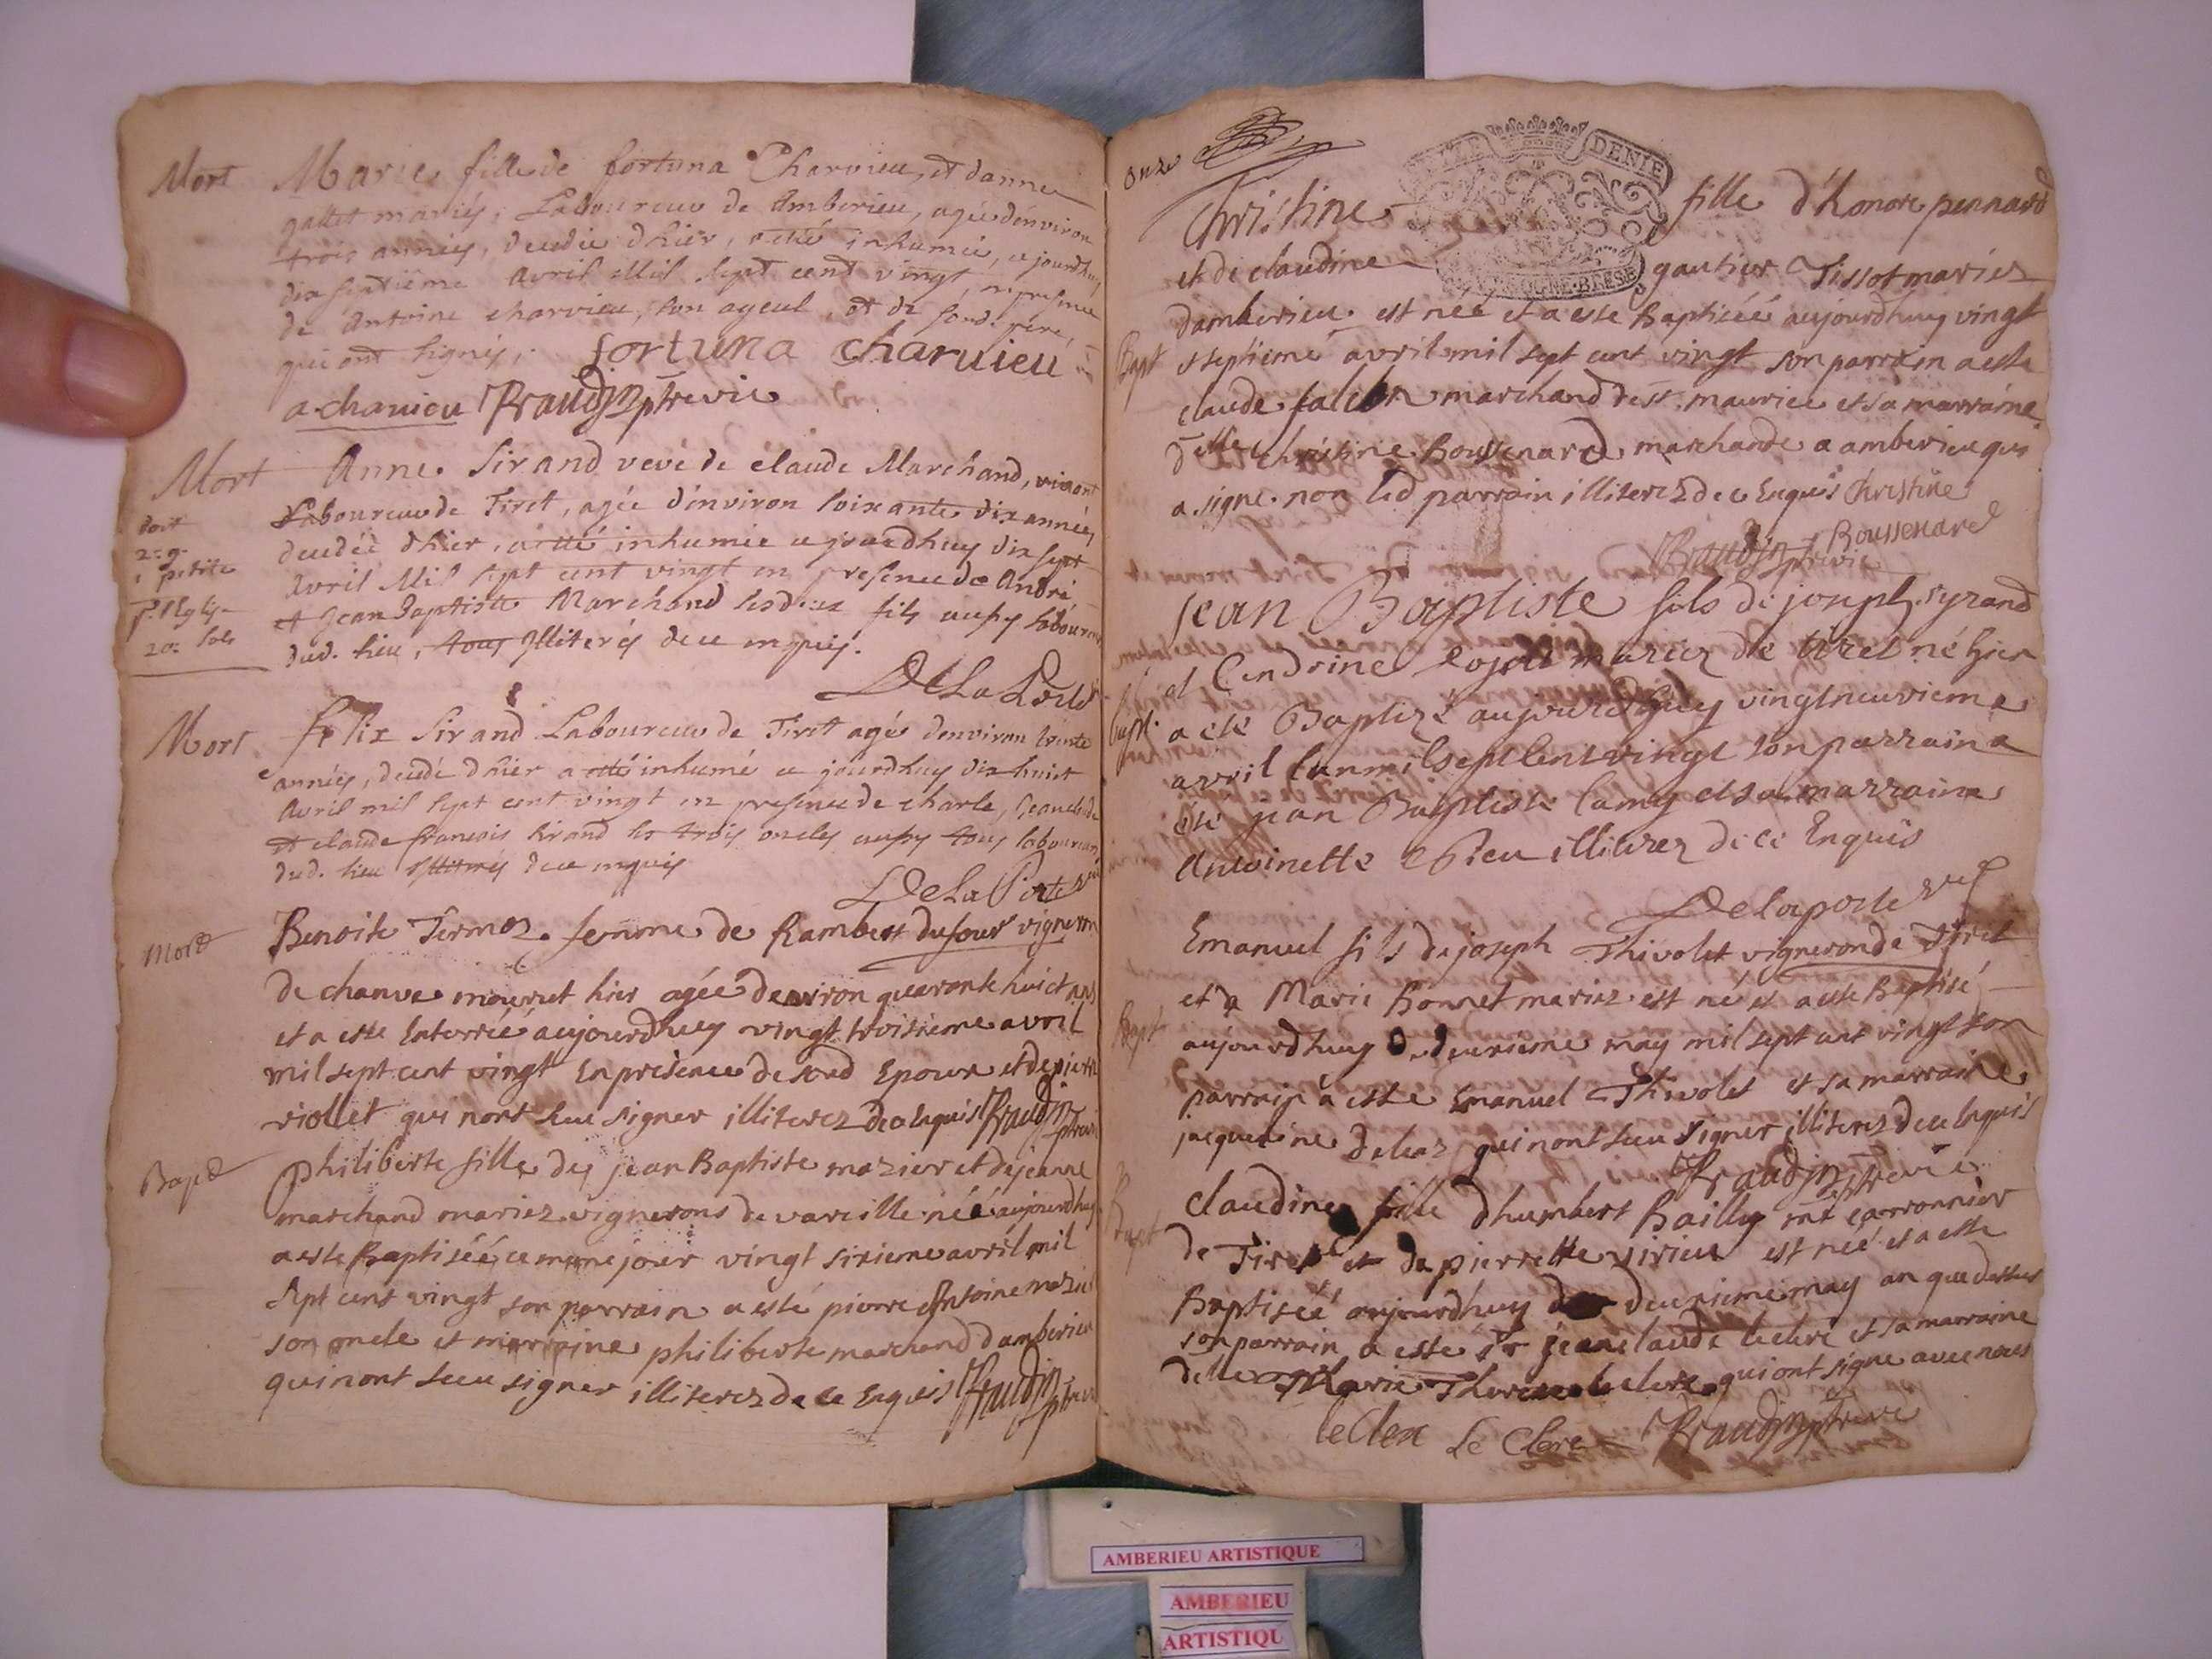 Mort
Marie fille de fortuna Charvieu, et danne
gallet mariés, Laboureur de Amberieu, agée d'environ
trois années, decedée d'hier, a été inhumée, ce jourdhuy
dix septiéme Avril Mil sept cent vingt, en presence
de Antoine charvieu, son ayeul, et de sond. pére,
qui ont signés,
fortuna charuieu
a charuieu Braudin ptre vic
Mort
Anne Sirand veve de claude Marchand, vivant
Laboureur de Tiret, agée d'environ soixante dix années
decedée d'hier, a été inhumée ce jourdhuy dix sept
Avril Mil sept cent vingt en presence de André
et Jean Baptiste Marchand ses deux fils aussy laboureurs
dud. lieu, tous Illiterés de ce enquis.
doit
petite
20 sols
De La Porte
Mort
felix Sirand Laboureur de Tiret agé denviron trente
années, decedé d'hier a été inhumé ce jourdhuy dix huict
Avril mil sept cent vingt en presence de charle, Jeanclaude
et claude francois Sirand ses trois oncles aussy tous laboureurs
dud. lieu Illiterés de ce enquis
De La Porte
Mord
Benoite Termoz femme de Rambert dufour vigneron
de chanve mourut hier agée denviron quaronte huict ans
et a este Enterrée aujourdhuy vingt troisieme avril
mil sept cent vingt En presence de sond Epoux et de pierre
viollet qui nont sceu signer illiterez de ce enquis Braudin ptre vic
Bapt
Philiberte fille de jean Baptiste mazier et de jeanne
marchand mariez vignerons de vareille née aujourdhuy
a este Baptisée ce meme jour vingt sixieme avril mil
sept cent vingt son parrain a esté pierre Antoine mazier
son oncle et marraine philiberte marchand d'amberieu
qui nont sceu signer illiterez de ce Enquis Braudin ptre
onze
DENIE
GNE·BRESE
Christine fille d'honore pennard
et de claudine gautier Tissot mariez
damberieu est née et a este Baptisée aujourdhuy vingt
Bapt
septieme avril mil sept cent vingt son parrain a este
claude falcon marchand de st maurice et sa marraine
delle Christine Boussenard marchande a amberieu qui
a signe non led parrain illiterez de ce Enquis Christine
Boussenard
Braudin ptre vic
jean Baptiste fils de joseph syrand
et Cendrine mariez de tiret né hier
Bapt.
a eté Baptizé aujourdhuy vingtneuvieme
avril lan mil sept cent vingt son parrain a
été jean Baptiste lamy et sa marraine
Antoinette illiterez de ce Enquis
Delaporte
Emanuel fils de joseph Thivolet vigneron de Tiret
et de Marie Bonnet mariez est né et a este Baptisé
Bapt
aujourdhuy deuxieme may mil sept cent vingt son
parrain a este Emanuel Thivolet et sa marraine
jacquemine qui nont sceu signer illiterez de ce Enquis
Braudin ptre vic
Bapt
claudine fille dhumbert Bailly mt carronnier
de Tiret et de pierrette virieu est née et a este
Baptisée aujourdhuy deuxieme may an que dessus
son parrain a este sr jeanclaude leclerc et sa marraine
delle Marie Therese leclerc qui ont signe avec nous
leclerc Le Clerc Braudin ptre vic
AMBERIEU ARTISTIQUE
AMBERIEU
ARTISTIQU